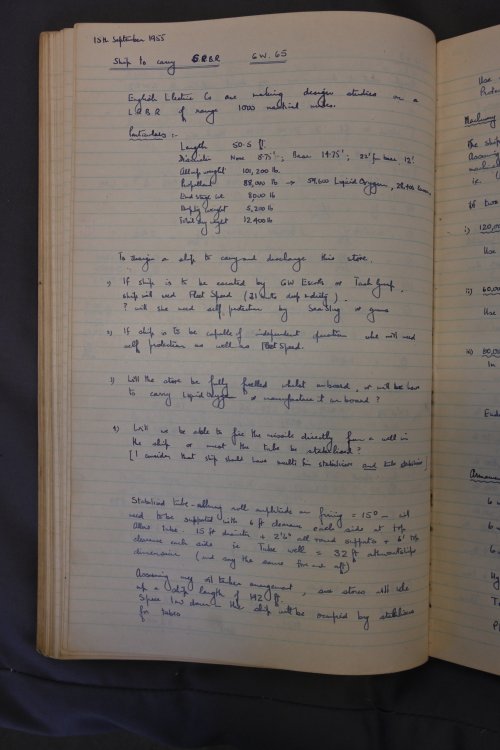 15th September 1955
Ship to carry GRBR GW. 65
English Electric Co are making design studies on a
LRBR of range 1000 nautical miles.
Particulars :-
Length 50.5 ft.
Diameter Nose 8.75' ; Base 14.75' ; 22' fin base 12'
All up weight 101,200 lb.
Propellant 88,000 lb → 59,600 Liquid Oxygen, 28,400
Load stage wt 8000 lb
Empty weight 5,200 lb
Total dry weight 12,400 lb
To design a ship to carry and discharge this store.
1) If ship is to be escorted by GW Escorts or Task Group,
ship will need Fleet Speed (21 knots deep & oily).
? will she need self protection by Sea Slug or guns
2) If ship is to be capable of independent operation she will need
self protection as well as Fleet Speed.
3) Will the store be fully fuelled whilst onboard, or will we have
to carry Liquid Oxygen or manufacture it on board ?
4) Will we be able to fire the missile directly from a well in
the ship or must the tube be stabilised ?
[I consider that ship should have multi fin stabilisers and tube stabilised]
Stabilised tube - allowing roll amplitude on firing = 15° - will
need to be supported with 6 ft clearance each side at top
Allow tube 15 ft diameter + 2'6" all round supports + 6' 0"
clearance each side ie. Tube well = 32 ft athwartships
dimension (and say the same for and aft)
Assuming say arrangement, six stores will take
up a ship length of 192 ft.
Space low down in the ship will be occupied by stabilisers
for tubes
Use
Machinery
The ship
Assuming
ie. (
If two
i) 120,00
Use
ii) 60,00
Use
iii) 80,00
In
Armament
6
6
6